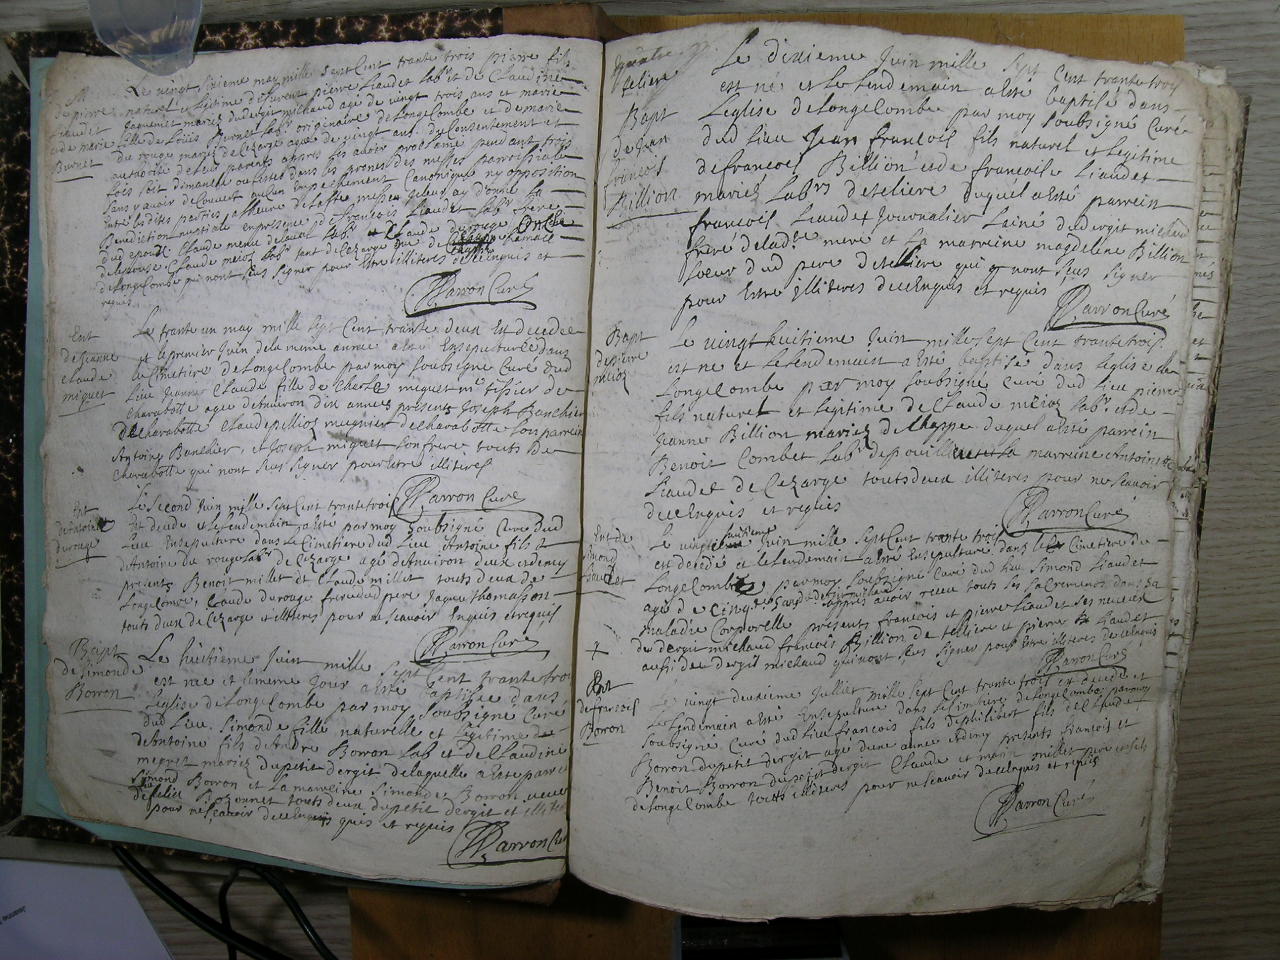 Le vingt sixieme may mille sept Cent trante trois pierre fils
naturel et legitime de feu pierre Liaudet lab.r et de Claudine
michaud agé de vingt trois ans et marie
fille de Louis Burnet lab.r originaire de Longecombe et de marie
du rouge mariez de Cezarge agée de vingt ans du Consentement et
authorité de leurs parents apprès les avoir proclamé pendant trois
fois soit dimanche ou festes dans les prones des messes parroissiale
sans y avoir decouvert aucun empechement Canonique ny opposition
desdites parties
Benediction nuptiale en presence de francois Liaudet lab.r frere
de Longecombe qui nont sceu signer pour Estre illiteres de ce enquis et
requis
Marron Curé
pierre
Liaudet
et de marie
Burnet
Le trante un may mille sept Cent trante deux Est decedee
et le premier Juin de la meme annee a esté Ensepulturée dans
le Cimetiere de Longecombe par moy soubsigné Curé dud
lieu Jeanne Claude fille de Charle miquet m.e tissier de
Charabotte agée denviron dix années présents Joseph Banchier
de Charabotte Claude pillioz mugnier de Charabotte son parrein
Antoine Banchier, et Joseph miquet son frere touts de
Charabotte qui nont sceu signer pour estre illiteres
Marron Curé
Ent
de Jeanne
Claude
miquet
Le second Juin mille sept Cent trante trois
est decede et le lendemain a esté par moy soubsigné Curé dud
Lieu Ensepulturé dans le Cimetiere dud Lieu Antoine fils d
Antoine du rouge lab.r de Cezarge agé denviron deux ans et demy
presents Benoit millet et Claude millet touts deux de
Longecombe, Claude du rouge frere dud pere Jaque thomasson
touts deux de Cezarge et illiteres pour ne scavoir Enquis et requis
Marron Curé
Ent
de Antoine
du rouge
Le huitieme Juin mille sept Cent trante trois
est née et le meme jour a esté Baptisée dans
Leglise de Longecombe par moy soubsigné Curé
dud Lieu Simonde fille naturelle et Legitime de
Antoine fils de Andre Borron lab.r et de Claudine
miquet mariez du petit dergit de laquelle a esté parrein
Simond Borron et La marreine Simonde Borron veuve
de felix Bozonnet touts deux du petit dergit et illiteres
pour ne scavoir de ce enquis et requis
Marron Curé
Bapt
de Simonde
Borron
Le dixieme Juin mille sept Cent trante trois
est né et le lendemain a esté baptisé dans
Leglise de Longecombe par moy soubsigné Curé
dud lieu Jean francois fils naturel et legitime
de francois Billion et de francoise Liaudet
mariez lab.rs de teliere duquel a esté parrein
francois Liaudet Journalier Lainé du dergit michaud
frere de lad.te mere et La marreine magdeleine Billion
soeur dud pere de telliere qui nont sceu signer
pour Estre illiteres de ce enquis et requis
Marron Curé
teliere
Bapt
de Jean
francois
Billion
Le vingt huitieme Juin mille sept Cent trante trois
est né et le lendemain a esté baptisé dans leglise de
Longecombe par moy soubsigné Curé dud lieu pierre
fils naturel et legitime de Claude meioz lab.r et de
Jeanne Billion mariez de lhappe duquel a esté parrein
Benoit Combet lab.r de poüilleu et La marreine Antoinette
Liaudet de Cezarge touts deux illiteres pour ne scavoir
de ce enquis et requis
Marron Curé
Bapt
de pierre
meioz
Le vingt Juin mille sept Cent trante trois
est decedé et le lendemain a esté Ensepulturé dans le Cimetiere de
Longecombe par moy soubsigné Curé dud lieu Simond Liaudet
agé de Cinq apprès avoir receu touts ses sacrements dans sa
maladie Corporelle presents francois et pierre Liaudet ses neveux
du dergit michaud francois Billion de telliere et pierre Liaudet
aussi de dergit michaud qui nont sceu signer pour estre illiteres de ce enquis
Marron Curé
Ent de
Simond
Liaudet
Le vingt deuxieme Juillet mille sept Cent trante trois est decede et
Le lendemain a esté Ensepulturé dans le Cimetiere de Longecombe par moy
soubsigné Curé dud lieu francois fils de philibert fils de Claude
Borron du petit dergit agé dune annee et demy presents francois et
Benoit Borron du petit dergit Claude et millet pere et fils
de Longecombe touts illiteres pour ne scavoir de ce enquis et requis
Marron Curé
Ent
de francois
Borron